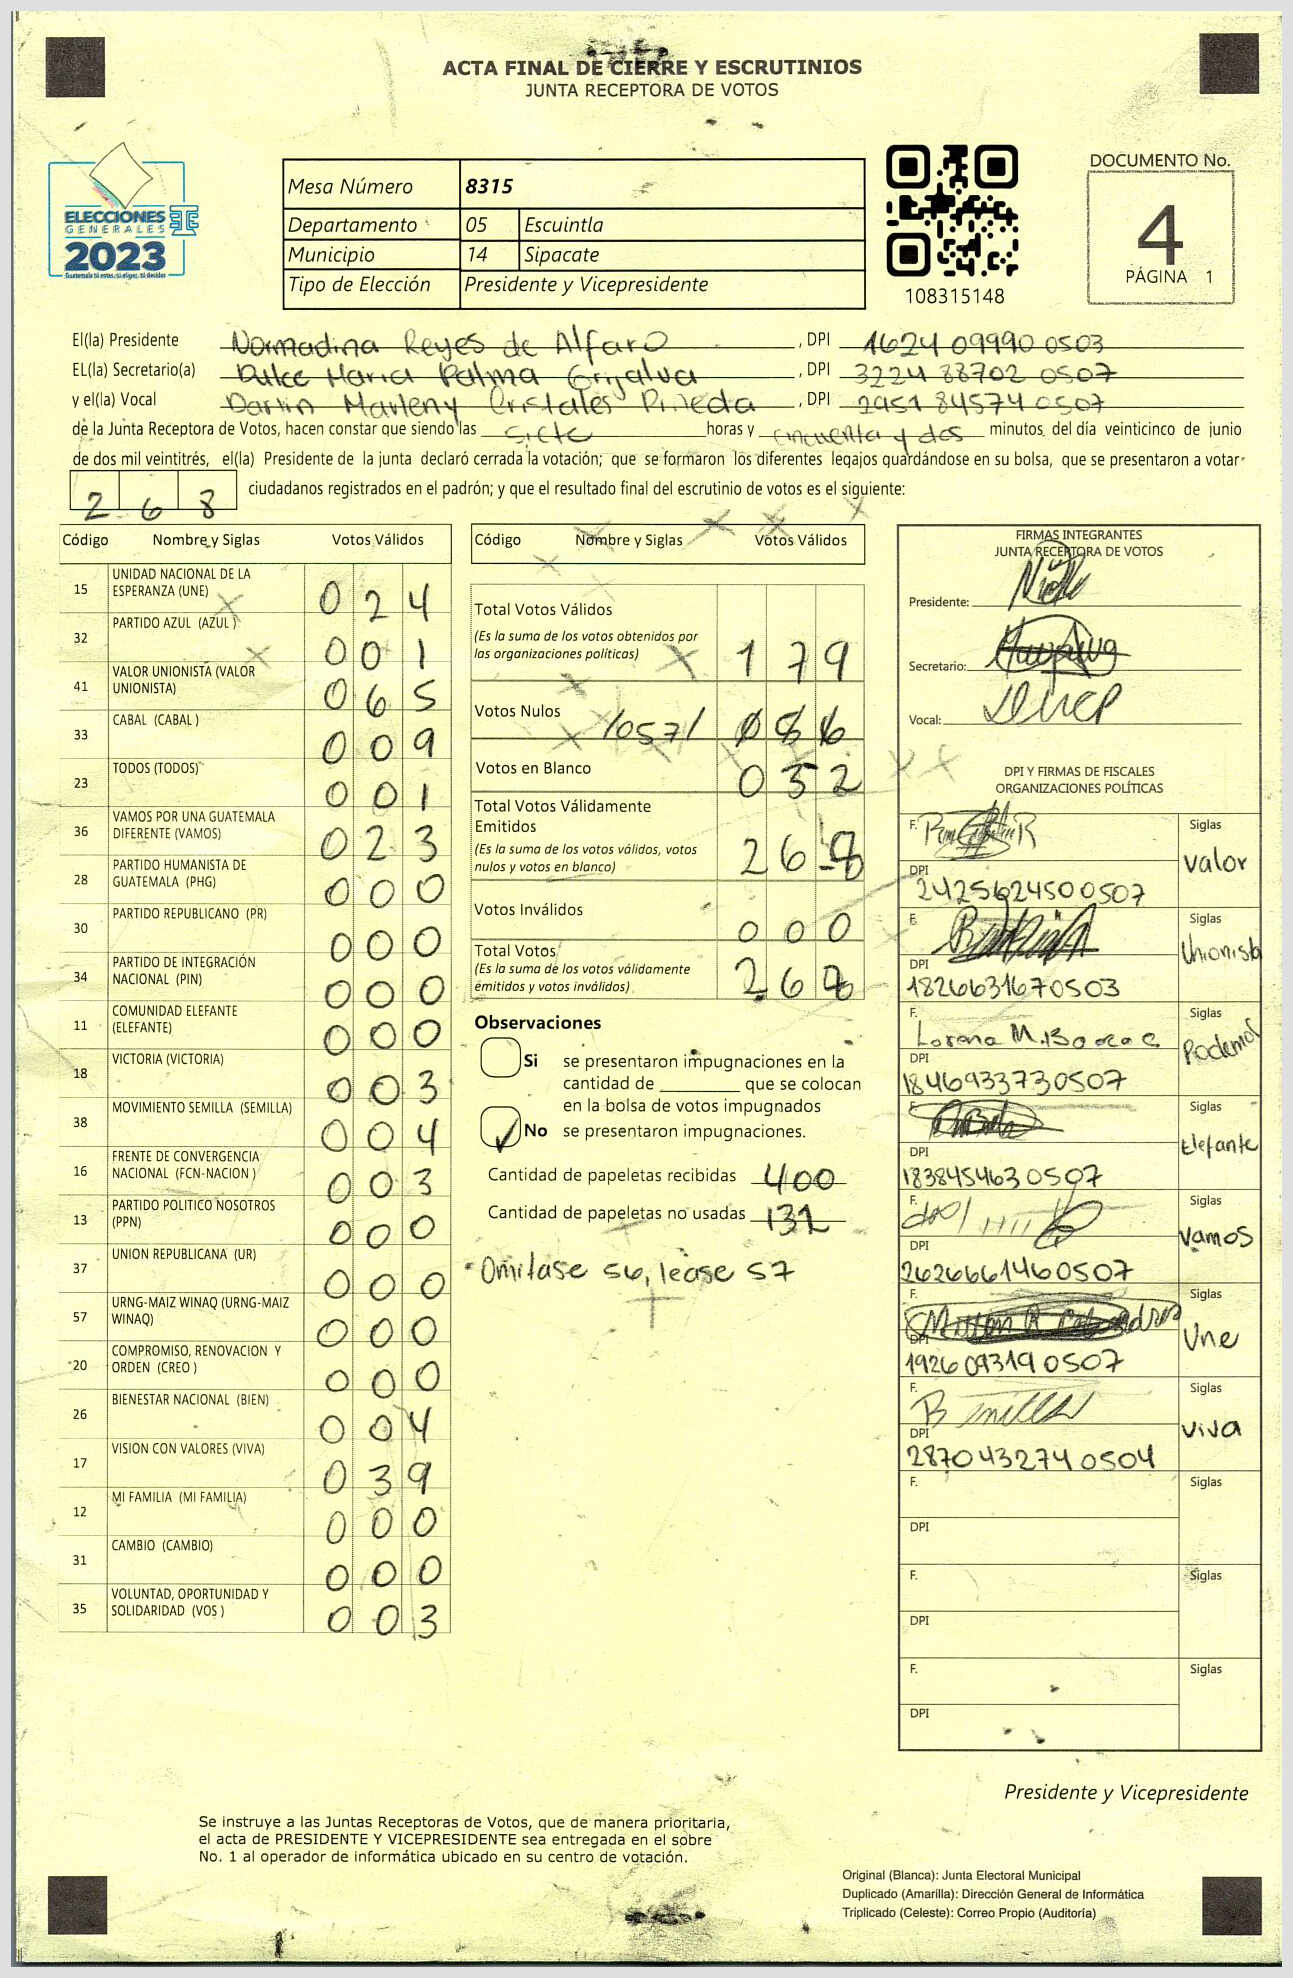 ACTA FINAL DE CIERRE Y ESCRUTINIOS
JUNTA RECEPTORA DE VOTOS
ELECCIONES
GENERALES
2023
Mesa Número 8315
Departamento 05 Escuintla
Municipio 14 Sipacate
Tipo de Elección Presidente y Vicepresidente
108315148
DOCUMENTO No.
4
PÁGINA 1
El(la) Presidente Normadina Reyes de Alfaro, DPI 1624 09990 0503
EL(la) Secretario(a) Dulce Maria Palma Grijalva, DPI 3224 88702 0507
y el(la) Vocal Darlin Marleny Cristales Pineda, DPI 2951 84574 0507
de la Junta Receptora de Votos, hacen constar que siendo las siete horas y cincuenta y dos minutos del día veinticinco de junio
de dos mil veintitrés, el(la) Presidente de la junta declaró cerrada la votación; que se formaron los diferentes legajos guardándose en su bolsa, que se presentaron a votar
268 ciudadanos registrados en el padrón; y que el resultado final del escrutinio de votos es el siguiente:
Código Nombre y Siglas Votos Válidos
15 UNIDAD NACIONAL DE LA ESPERANZA (UNE) 024
32 PARTIDO AZUL (AZUL ) 001
41 VALOR UNIONISTA (VALOR UNIONISTA) 065
33 CABAL (CABAL ) 009
23 TODOS (TODOS) 001
36 VAMOS POR UNA GUATEMALA DIFERENTE (VAMOS) 023
28 PARTIDO HUMANISTA DE GUATEMALA (PHG) 000
30 PARTIDO REPUBLICANO (PR) 000
34 PARTIDO DE INTEGRACIÓN NACIONAL (PIN) 000
11 COMUNIDAD ELEFANTE (ELEFANTE) 000
18 VICTORIA (VICTORIA) 003
38 MOVIMIENTO SEMILLA (SEMILLA) 004
16 FRENTE DE CONVERGENCIA NACIONAL (FCN-NACION ) 003
13 PARTIDO POLITICO NOSOTROS (PPN) 000
37 UNION REPUBLICANA (UR) 000
57 URNG-MAIZ WINAQ (URNG-MAIZ WINAQ) 000
20 COMPROMISO, RENOVACION Y ORDEN (CREO ) 000
26 BIENESTAR NACIONAL (BIEN) 004
17 VISION CON VALORES (VIVA) 039
12 MI FAMILIA (MI FAMILIA) 000
31 CAMBIO (CAMBIO) 000
35 VOLUNTAD, OPORTUNIDAD Y SOLIDARIDAD (VOS ) 003
Código Nombre y Siglas Votos Válidos
Total Votos Válidos
(Es la suma de los votos obtenidos por
las organizaciones políticas) 179
Votos Nulos /057/
Votos en Blanco 032
Total Votos Válidamente
Emitidos
(Es la suma de los votos válidos, votos
nulos y votos en blanco) 268
Votos Inválidos 000
Total Votos
(Es la suma de los votos válidamente
emitidos y votos inválidos) 268
Observaciones
Si se presentaron impugnaciones en la
cantidad de ________ que se colocan
en la bolsa de votos impugnados
No se presentaron impugnaciones.
Cantidad de papeletas recibidas 400
Cantidad de papeletas no usadas 132
Omitase 56, lease 57
FIRMAS INTEGRANTES
JUNTA RECEPTORA DE VOTOS
Presidente:
Secretario:
Vocal:
DPI Y FIRMAS DE FISCALES
ORGANIZACIONES POLÍTICAS
F. Siglas
Valor
DPI
2425624500507
F. Siglas
Unionista
DPI
1826631670503
F. Siglas
Lorena M. Podemos
DPI
1846933730507
F. Siglas
Elefante
DPI
1838454630507
F. Siglas
Vamos
DPI
2626661460507
F. Siglas
Une
DPI
1926093190507
F. Siglas
Viva
DPI
2870432740504
F. Siglas
DPI
F. Siglas
DPI
F. Siglas
DPI
Presidente y Vicepresidente
Se instruye a las Juntas Receptoras de Votos, que de manera prioritaria,
el acta de PRESIDENTE Y VICEPRESIDENTE sea entregada en el sobre
No. 1 al operador de informática ubicado en su centro de votación.
Original (Blanca): Junta Electoral Municipal
Duplicado (Amarilla): Dirección General de Informática
Triplicado (Celeste): Correo Propio (Auditoría)